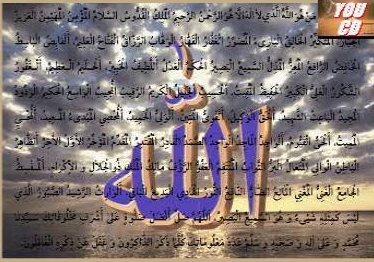 هو الله الذي لا إله إلا هو الرحمن الرحيم الملك القدوس السلام المؤمن المهيمن العزيز
الجبار المتكبر الخالق البارئ المصور الغفار القهار الوهاب الرزاق الفتاح العليم القابض الباسط
الخافض الرافع المعز المذل السميع البصير الحكم العدل اللطيف الخبير الحليم العظيم الغفور
الشكور العلي الكبير الحفيظ المقيت الحسيب الجليل الكريم الرقيب المجيب الواسع الحكيم الودود
المجيد الباعث الشهيد الحق الوكيل القوي المتين الولي الحميد المحصي المبدئ المعيد المحيي
المميت الحي القيوم الواجد الماجد الواحد الصمد القادر المقتدر المقدم المؤخر الأول الآخر الظاهر
الباطن الوالي المتعال البر التواب المنتقم العفو الرؤوف مالك الملك ذو الجلال و الإكرام المقسط
الجامع الغني المغني المانع الضار النافع النور الهادي البديع الباقي الوارث الرشيد الصبور الذي
ليس كمثله شيء و هو السميع البصير اللهم صل أفضل صلاة على أشرف مخلوقاتك سيدنا
محمد و على آله و صحبه و سلم عدد معلوماتك كلما ذكرك الذاكرون و غفل عن ذكره الغافلون
الله
YOU
CD